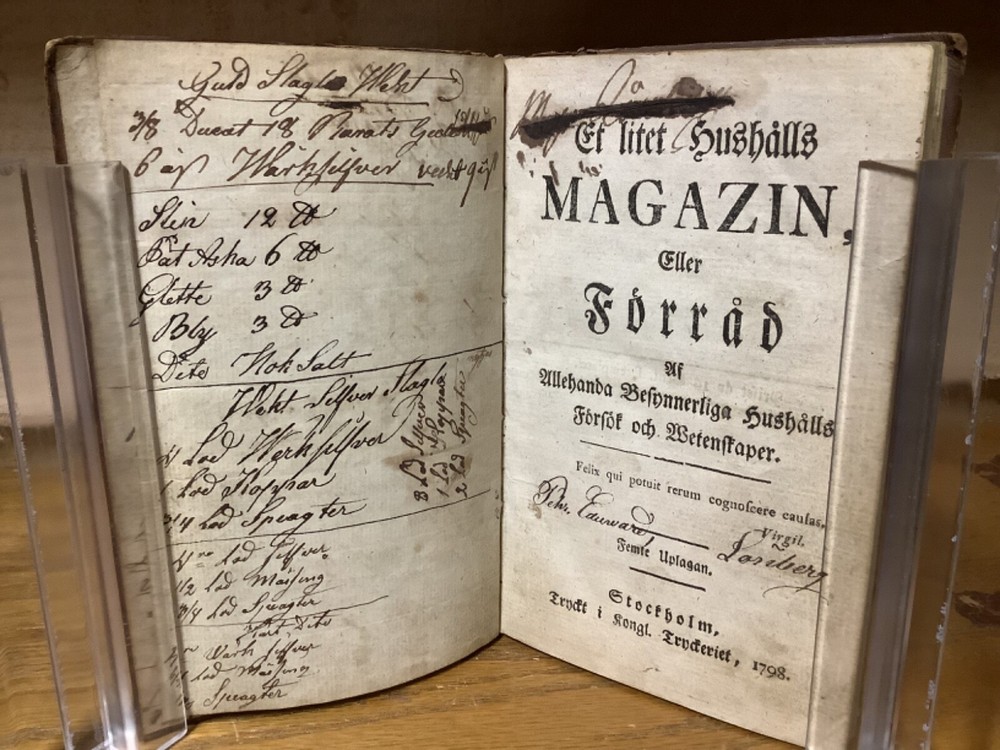 Guld Slaglo Wekt
3/8 Ducat 18 Karats
6 as Wärksilfver
Slin 12 ℔
Påt Asha 6 ℔
Glette 3 ℔
Bly 3 ℔
Dito Kok Salt
Wekt Silfver Slaglo
4 Lod Werksilfver
1 Lod Koppar
3/4 Lod Speagter
8 Lod Silfver
1 Lod Koppar
2 Lod Speagter
Lod Silfver
1/2 Lod Mässing
3/4 Lod Speagter
Dito
Wärk Silfver
Lod Mässing
Speagter
Et litet Hushålls
MAGAZIN,
Eller
Förråd
Af
Allehanda Besynnerliga Hushålls
Försök och Wetenskaper.
Felix qui potuit rerum cognoscere causas,
Virgil.
Lönberg
Femte Uplagan.
Stockholm,
Tryckt i Kongl. Tryckeriet, 1798.